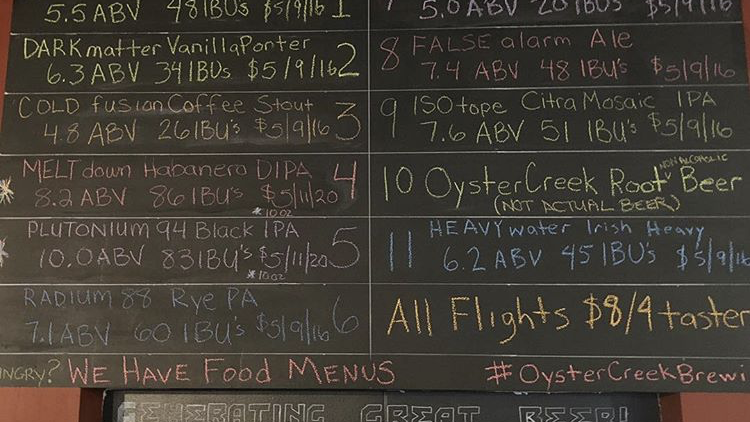 5.5 ABV 48 IBUs $5/9/16 1
DARK matter Vanilla Porter
6.3 ABV 34 IBUs $5/9/16 2
COLD fusion Coffee Stout
4.8 ABV 26 IBU's $5/9/16 3
MELT down Habanero DIPA 4
8.2 ABV 86 IBU's $5/11/20
*10oz
PLUTONIUM 94 Black IPA 5
10.0 ABV 83 IBU's $5/11/20
*10oz
RADIUM 88 Rye PA
7.1 ABV 60 IBU's $5/9/16 6
5.0 ABV 20 IBU's $5/9/16
8 FALSE alarm Ale
7.4 ABV 48 IBU's $5/9/16
9 ISOtope Citra Mosaic IPA
7.6 ABV 51 IBU's $5/9/16
NON ALCOHOLIC
10 Oyster Creek Root Beer
(NOT ACTUAL BEER)
HEAVY water Irish Heavy
11 6.2 ABV 45 IBU's $5/9/16
All Flights $8/4 taster
NGRY? WE HAVE FOOD MENUS #OysterCreekBrewi
GENERATING GREAT BEER!